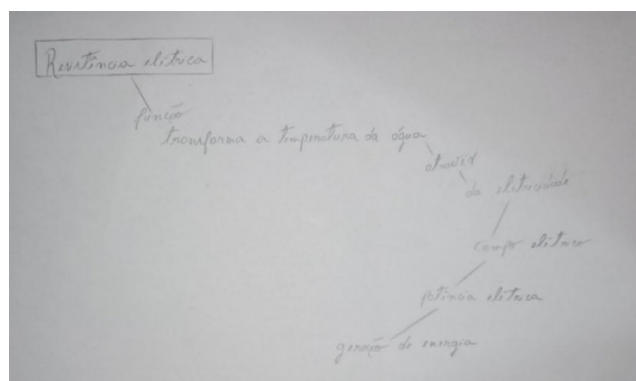 Resistência eletrica
função
transforma a temperatura da água
através
da eletricidade
campo elétrico
potência eletrica
geração de energia